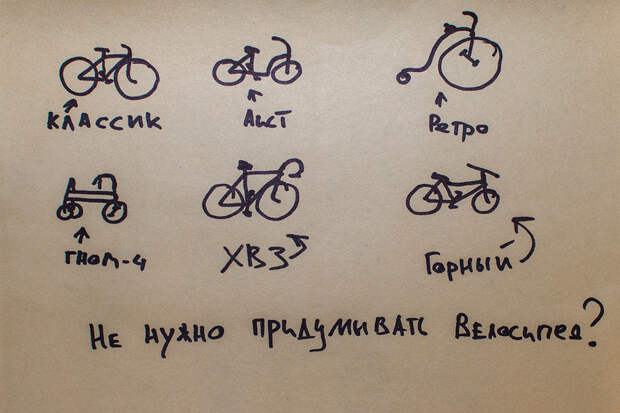 Классик Аист Ретро
Гном-4 ХВЗ Горный
Не нужно придумивать велосипед?